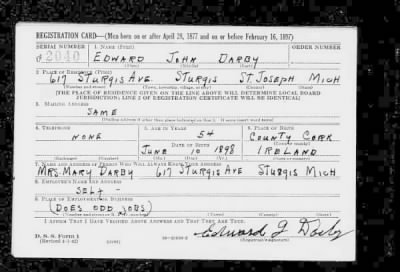 REGISTRATION CARD—(Men born on or after April 28, 1877 and on or before February 16, 1897)
SERIAL NUMBER 1. NAME (Print) ORDER NUMBER
2040 EDWARD JOHN DARBY
(First) (Middle) (Last)
2. PLACE OF RESIDENCE (Print)
617 STURGIS AVE STURGIS ST. JOSEPH MICH
(Number and street) (Town, township, village, or city) (County) (State)
[THE PLACE OF RESIDENCE GIVEN ON THE LINE ABOVE WILL DETERMINE LOCAL BOARD
JURISDICTION; LINE 2 OF REGISTRATION CERTIFICATE WILL BE IDENTICAL]
3. MAILING ADDRESS
SAME
[Mailing address if other than place indicated on line 2. If same insert word same]
4. TELEPHONE 5. AGE IN YEARS 6. PLACE OF BIRTH
NONE 54 COUNTY CORK
DATE OF BIRTH (Town or county)
JUNE 10 1898 IRELAND
(Exchange) (Number) (Mo.) (Day) (Yr.) (State or country)
7. NAME AND ADDRESS OF PERSON WHO WILL ALWAYS KNOW YOUR ADDRESS
MRS. MARY DARBY 617 STURGIS AVE STURGIS MICH
8. EMPLOYER'S NAME AND ADDRESS
SELF -
9. PLACE OF EMPLOYMENT OR BUSINESS
(DOES ODD JOBS)
(Number and street or R. F. D. number) (Town) (County) (State)
I AFFIRM THAT I HAVE VERIFIED ABOVE ANSWERS AND THAT THEY ARE TRUE.
D. S. S. Form 1
(Revised 4-1-42) (over) Edward J Darby
(Registrant's signature)